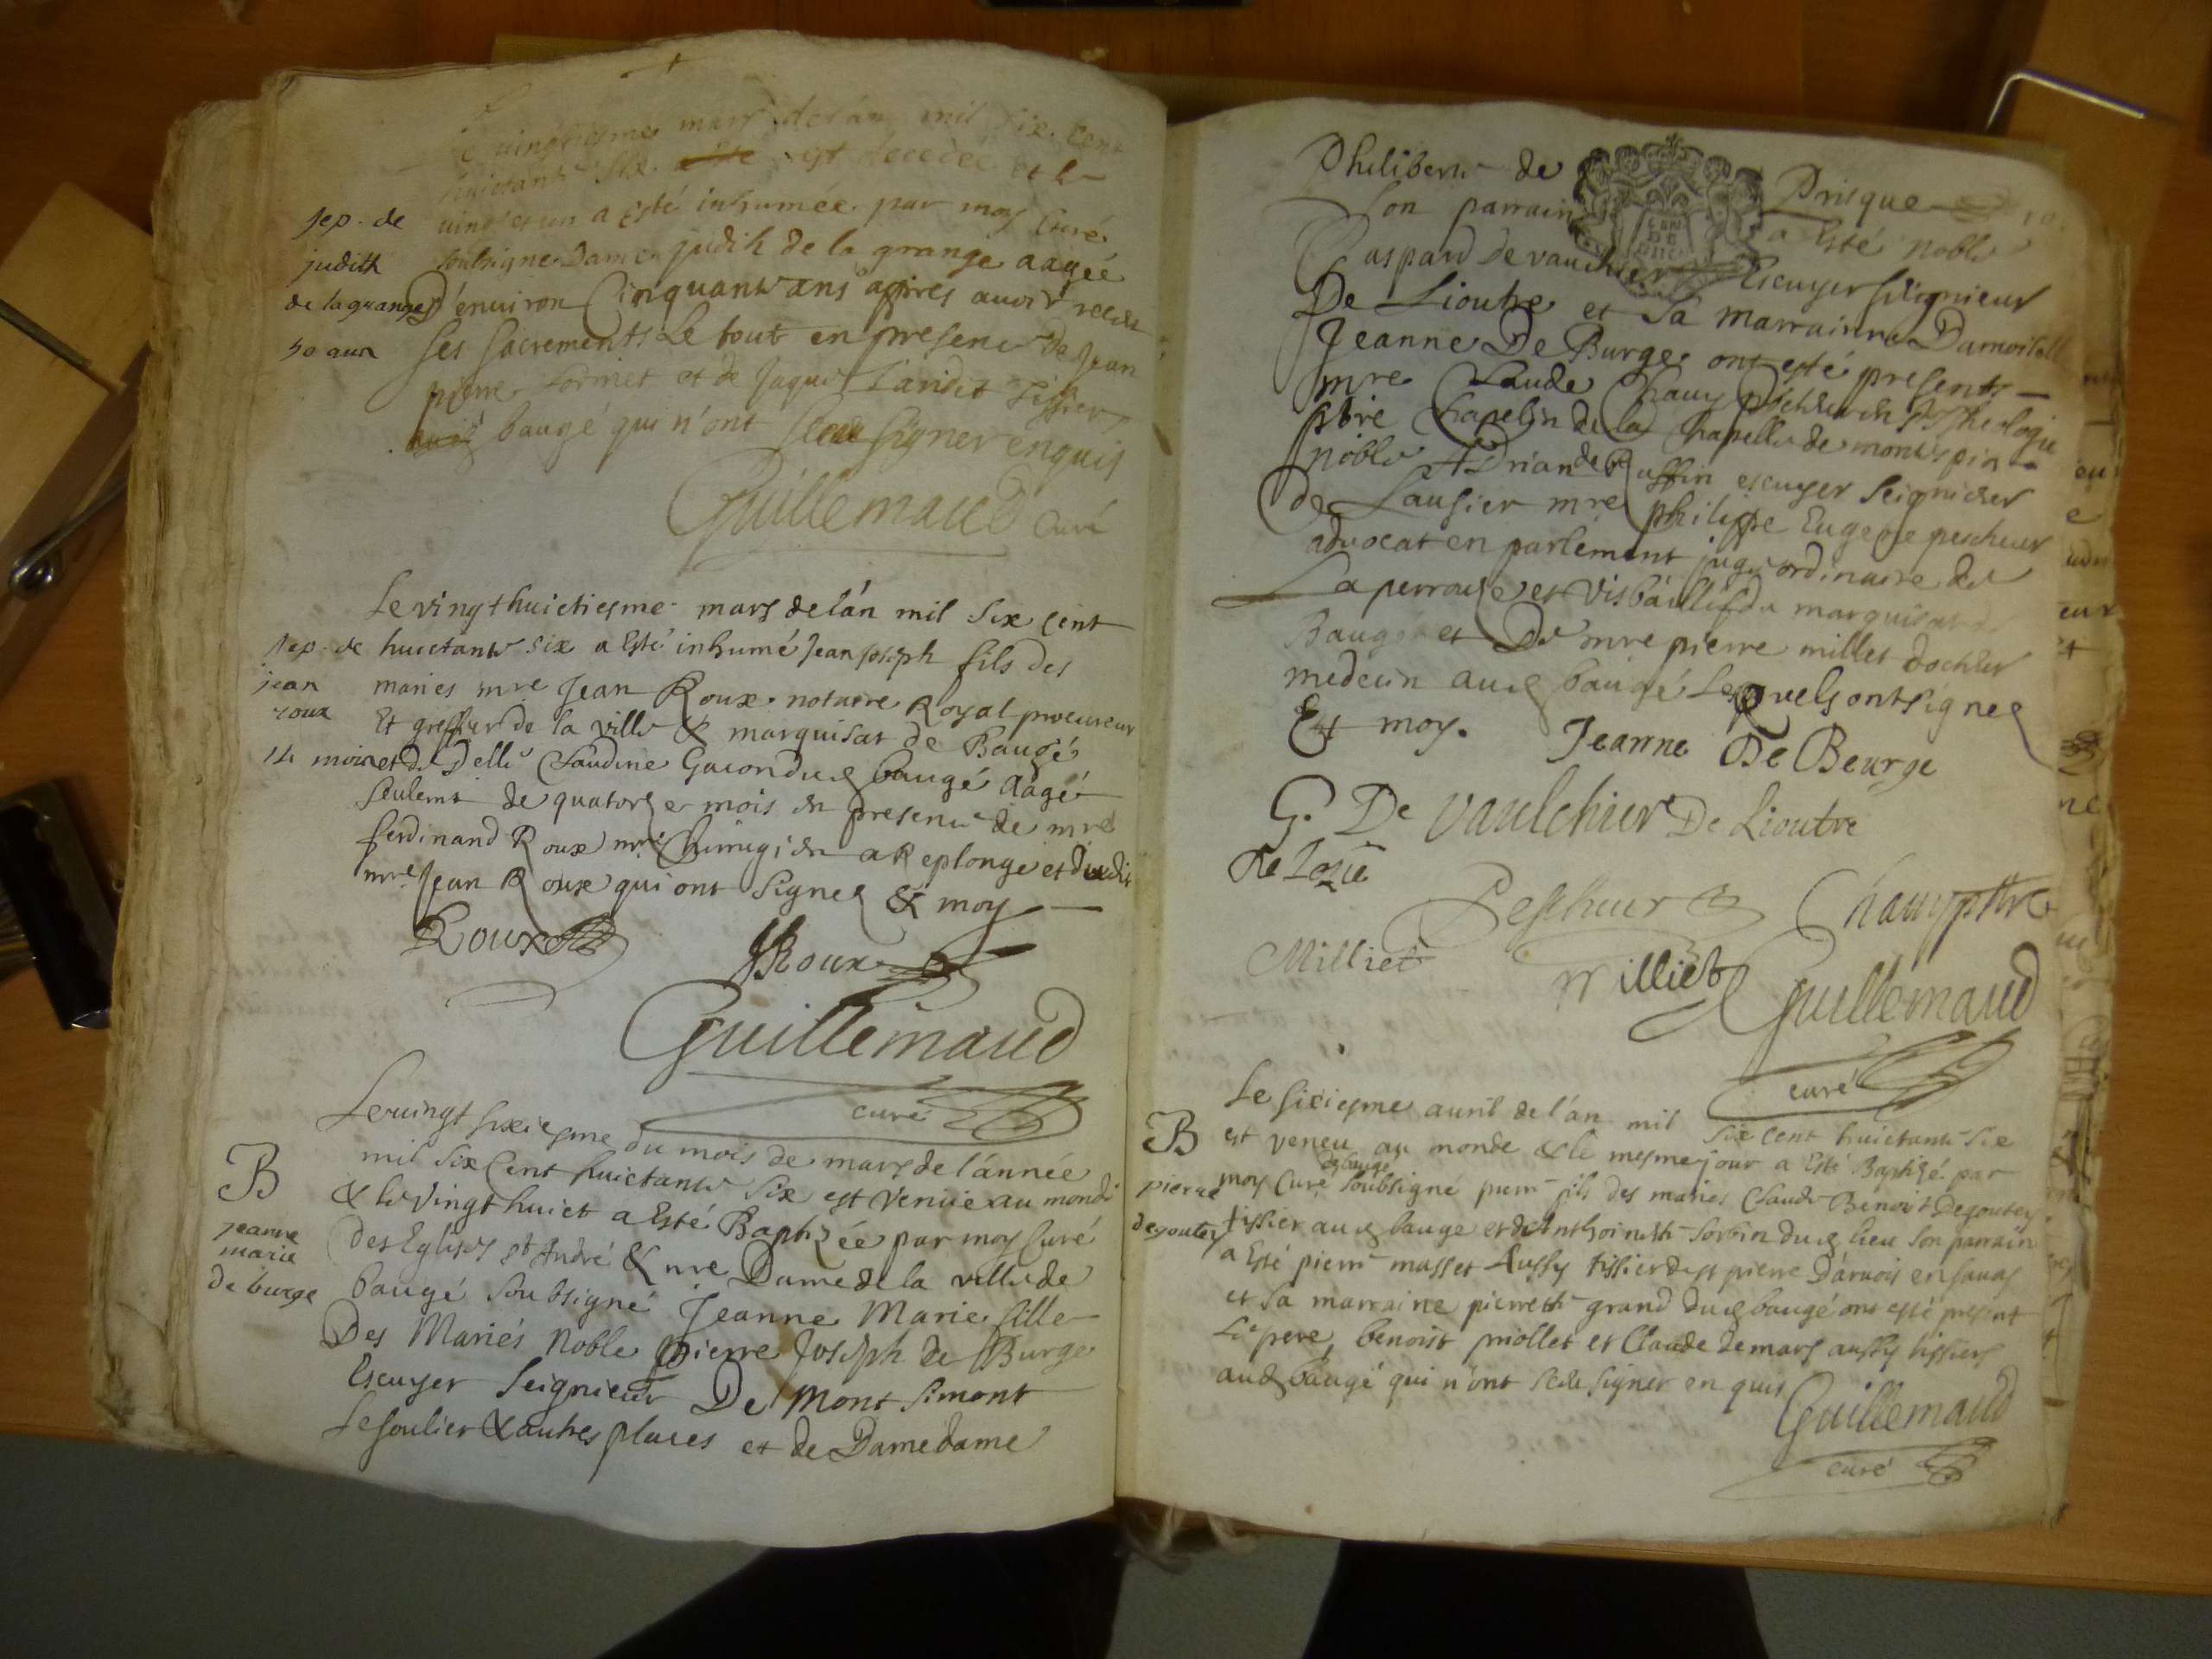 Le vingtiesme mars de l'an mil six cent
huictante six est decedée et le
vingt et un a esté inhumée par moy Curé
soubsigné Dame judith de la grange aagée
D'environ Cinquante ans appres avoir receu
ses sacrements Le tout en presence de Jean
pierre sornet et de Jaques Landit tissier
baugé qui n'ont sceu signer enquis
Guillemaud Curé
sep. de
judith
de la grange
50 ans
Le vingt huictiesme mars de l'án mil six cent
huictante six a esté inhumé Jean Joseph fils des
maries mre Jean Roux notaire Royal procureur
Et greffier de la ville & marquisat de Baugé
et de Delle Claudine Gacon dud baugé Aagé
seulemt de quatorze mois en presence de mre
ferdinand Roux mre Chirurgien a Replonge et dudit
mre Jean Roux qui ont signez & moy
sep. de
jean
roux
14 mois
Roux
JRoux
Guillemaud
curé
Le vingt sixiesme du mois de mars de l'ánnée
mil six Cent huictante six est venue au monde
& le vingt huict a esté Baptizée par moy Curé
des Eglises st André & nre Dame de la ville de
baugé soubsigné Jeanne Marie fille
Des Mariés Noble pierre Joseph de Burge
Escuyer Seignieur De Mont simont
Lesoulier & autres places et de Dame dame
B
jeanne
marie
de burge
Philiberte de Prisque
son parrain a Esté noble
Gaspard de vauchier Escuyer seignieur
De Lioutre et sa marrainne Damoiselle
Jeanne De Burge ont esté presents
mre Claude Chauy docteur en ste theologie
pbre Chapelin de la Chapelle de montespin
noble Adrian de Ruffin escuyer seignieur
de Lausier mre philippe Eugene pescheur
advocat en parlement juge ordinaire de
La perrouse et visbaillif du marquisat de
Baugé et De mre pierre millet docteur
medecin aud baugé Lesquels ont signez
Et moy. Jeanne De Beurge
G. De vaulchier De Lioutre
Pescheur Chauy pttre
Milliet
Milliet
Guillemaud
curé
Le sixiesme auril de l'an mil six cent huictante six
est veneu au monde & le mesme jour a esté Baptizé par
moy Curé de bauge soubsigné pierre fils des maries Claude Benoit Degoutes
tissier aud bauge et de Anthoinette sorbin dud lieu son parrain
a Esté pierre musset Aussy tissier de st pierre D'aruois
et sa marraine pierrette grand dud baugé ont esté present
Le pere, benoist priollet et Claude demars aussy tissiers
aud baugé qui n'ont sceu signer enquis
B
pierre
degoutes
Guillemaud
curé